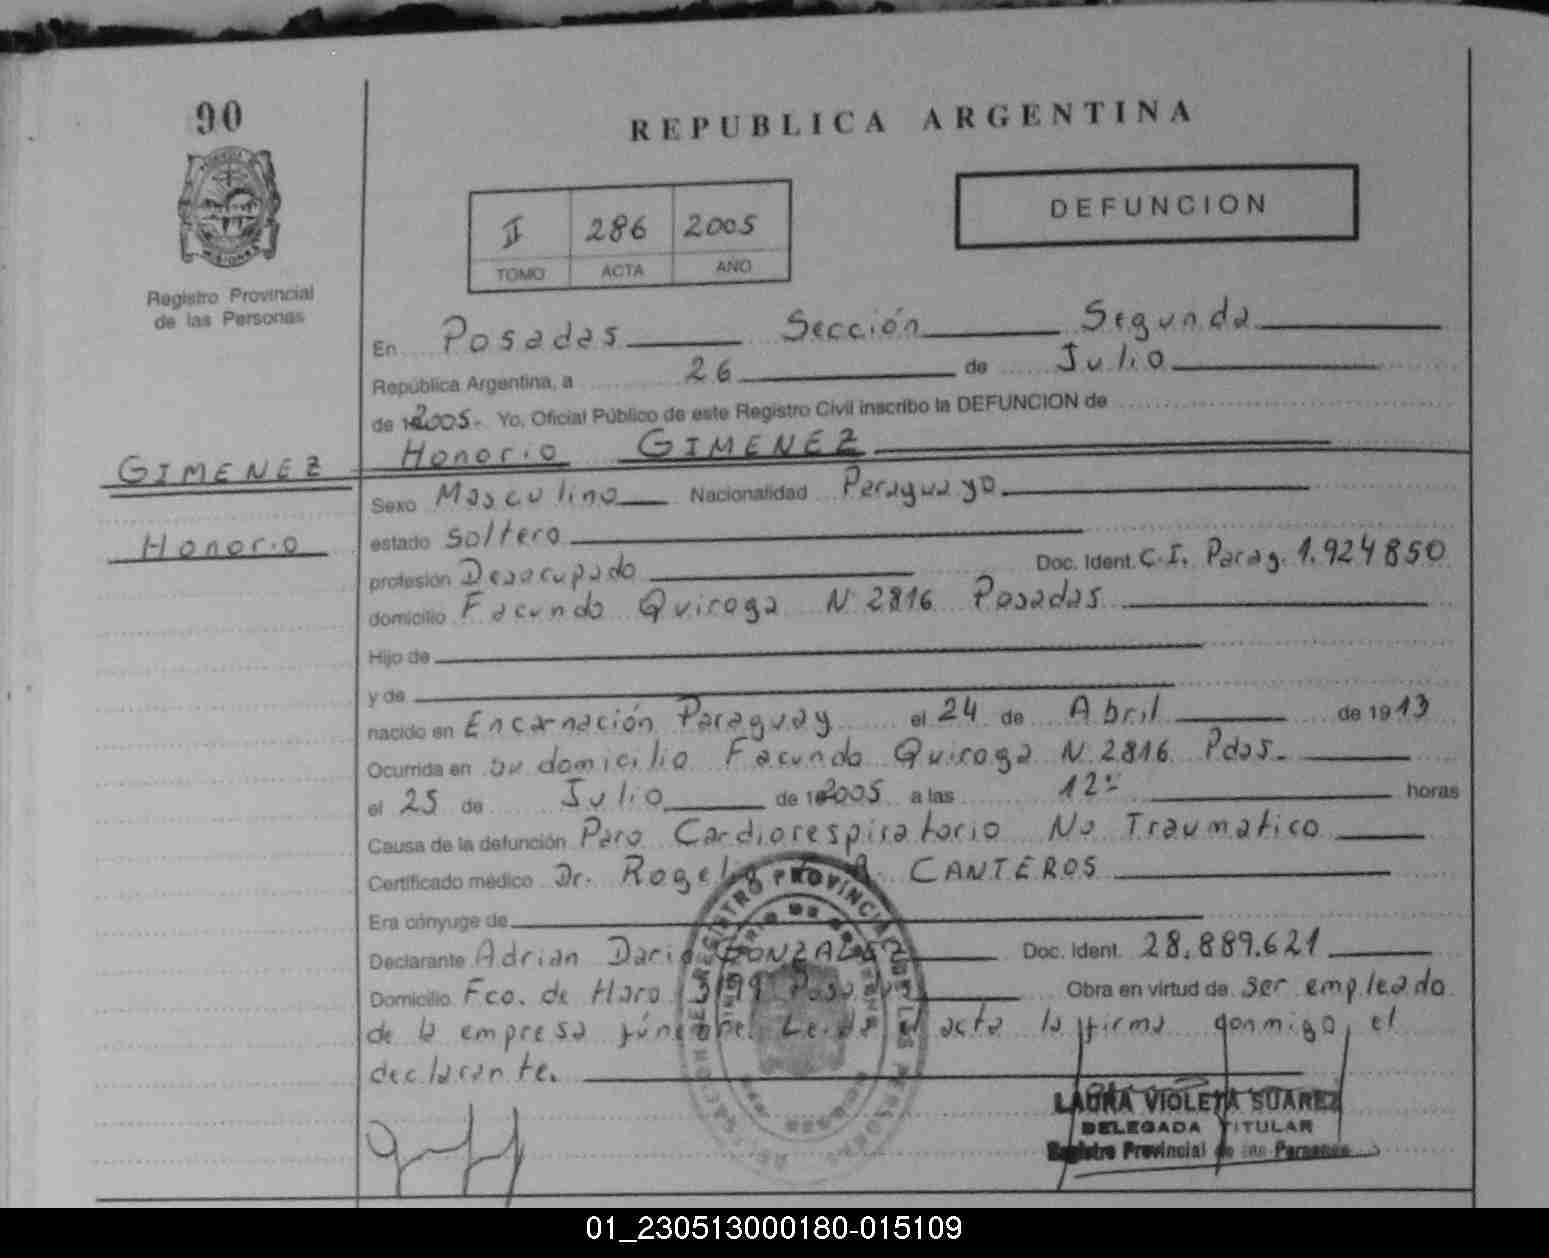 90
REPUBLICA ARGENTINA
II 286 2005
TOMO ACTA AÑO
DEFUNCION
Registro Provincial
de las Personas
En Posadas Sección Segunda
República Argentina, a 26 de Julio
de 2005. Yo, Oficial Público de este Registro Civil inscribo la DEFUNCION de
GIMENEZ
Honorio
Honorio GIMENEZ
Sexo Masculino Nacionalidad Paraguayo
estado Soltero
profesión Desocupado Doc. Ident. C.I. Parag. 1.924850
domicilio Facundo Quiroga N. 2816 Posadas
Hijo de
y de
nacido en Encarnación Paraguay el 24 de Abril de 1913
Ocurrida en su domicilio Facundo Quiroga N. 2816 Pdas.
el 25 de Julio de 2005 a las 12 horas
Causa de la defunción Paro Cardiorespiratorio No Traumatico
Certificado médico Dr. Rogelio CANTEROS
Era cónyuge de
Declarante Adrian Dario GONZALEZ Doc. Ident. 28.889.621
Domicilio Fco. de Haro 3199 Posadas Obra en virtud de ser empleado
de la empresa fúnebre. Leida acta la firma conmigo, el
declarante.
LAURA VIOLETA SUAREZ
DELEGADA TITULAR
Registro Provincial de las Personas
01_230513000180-015109